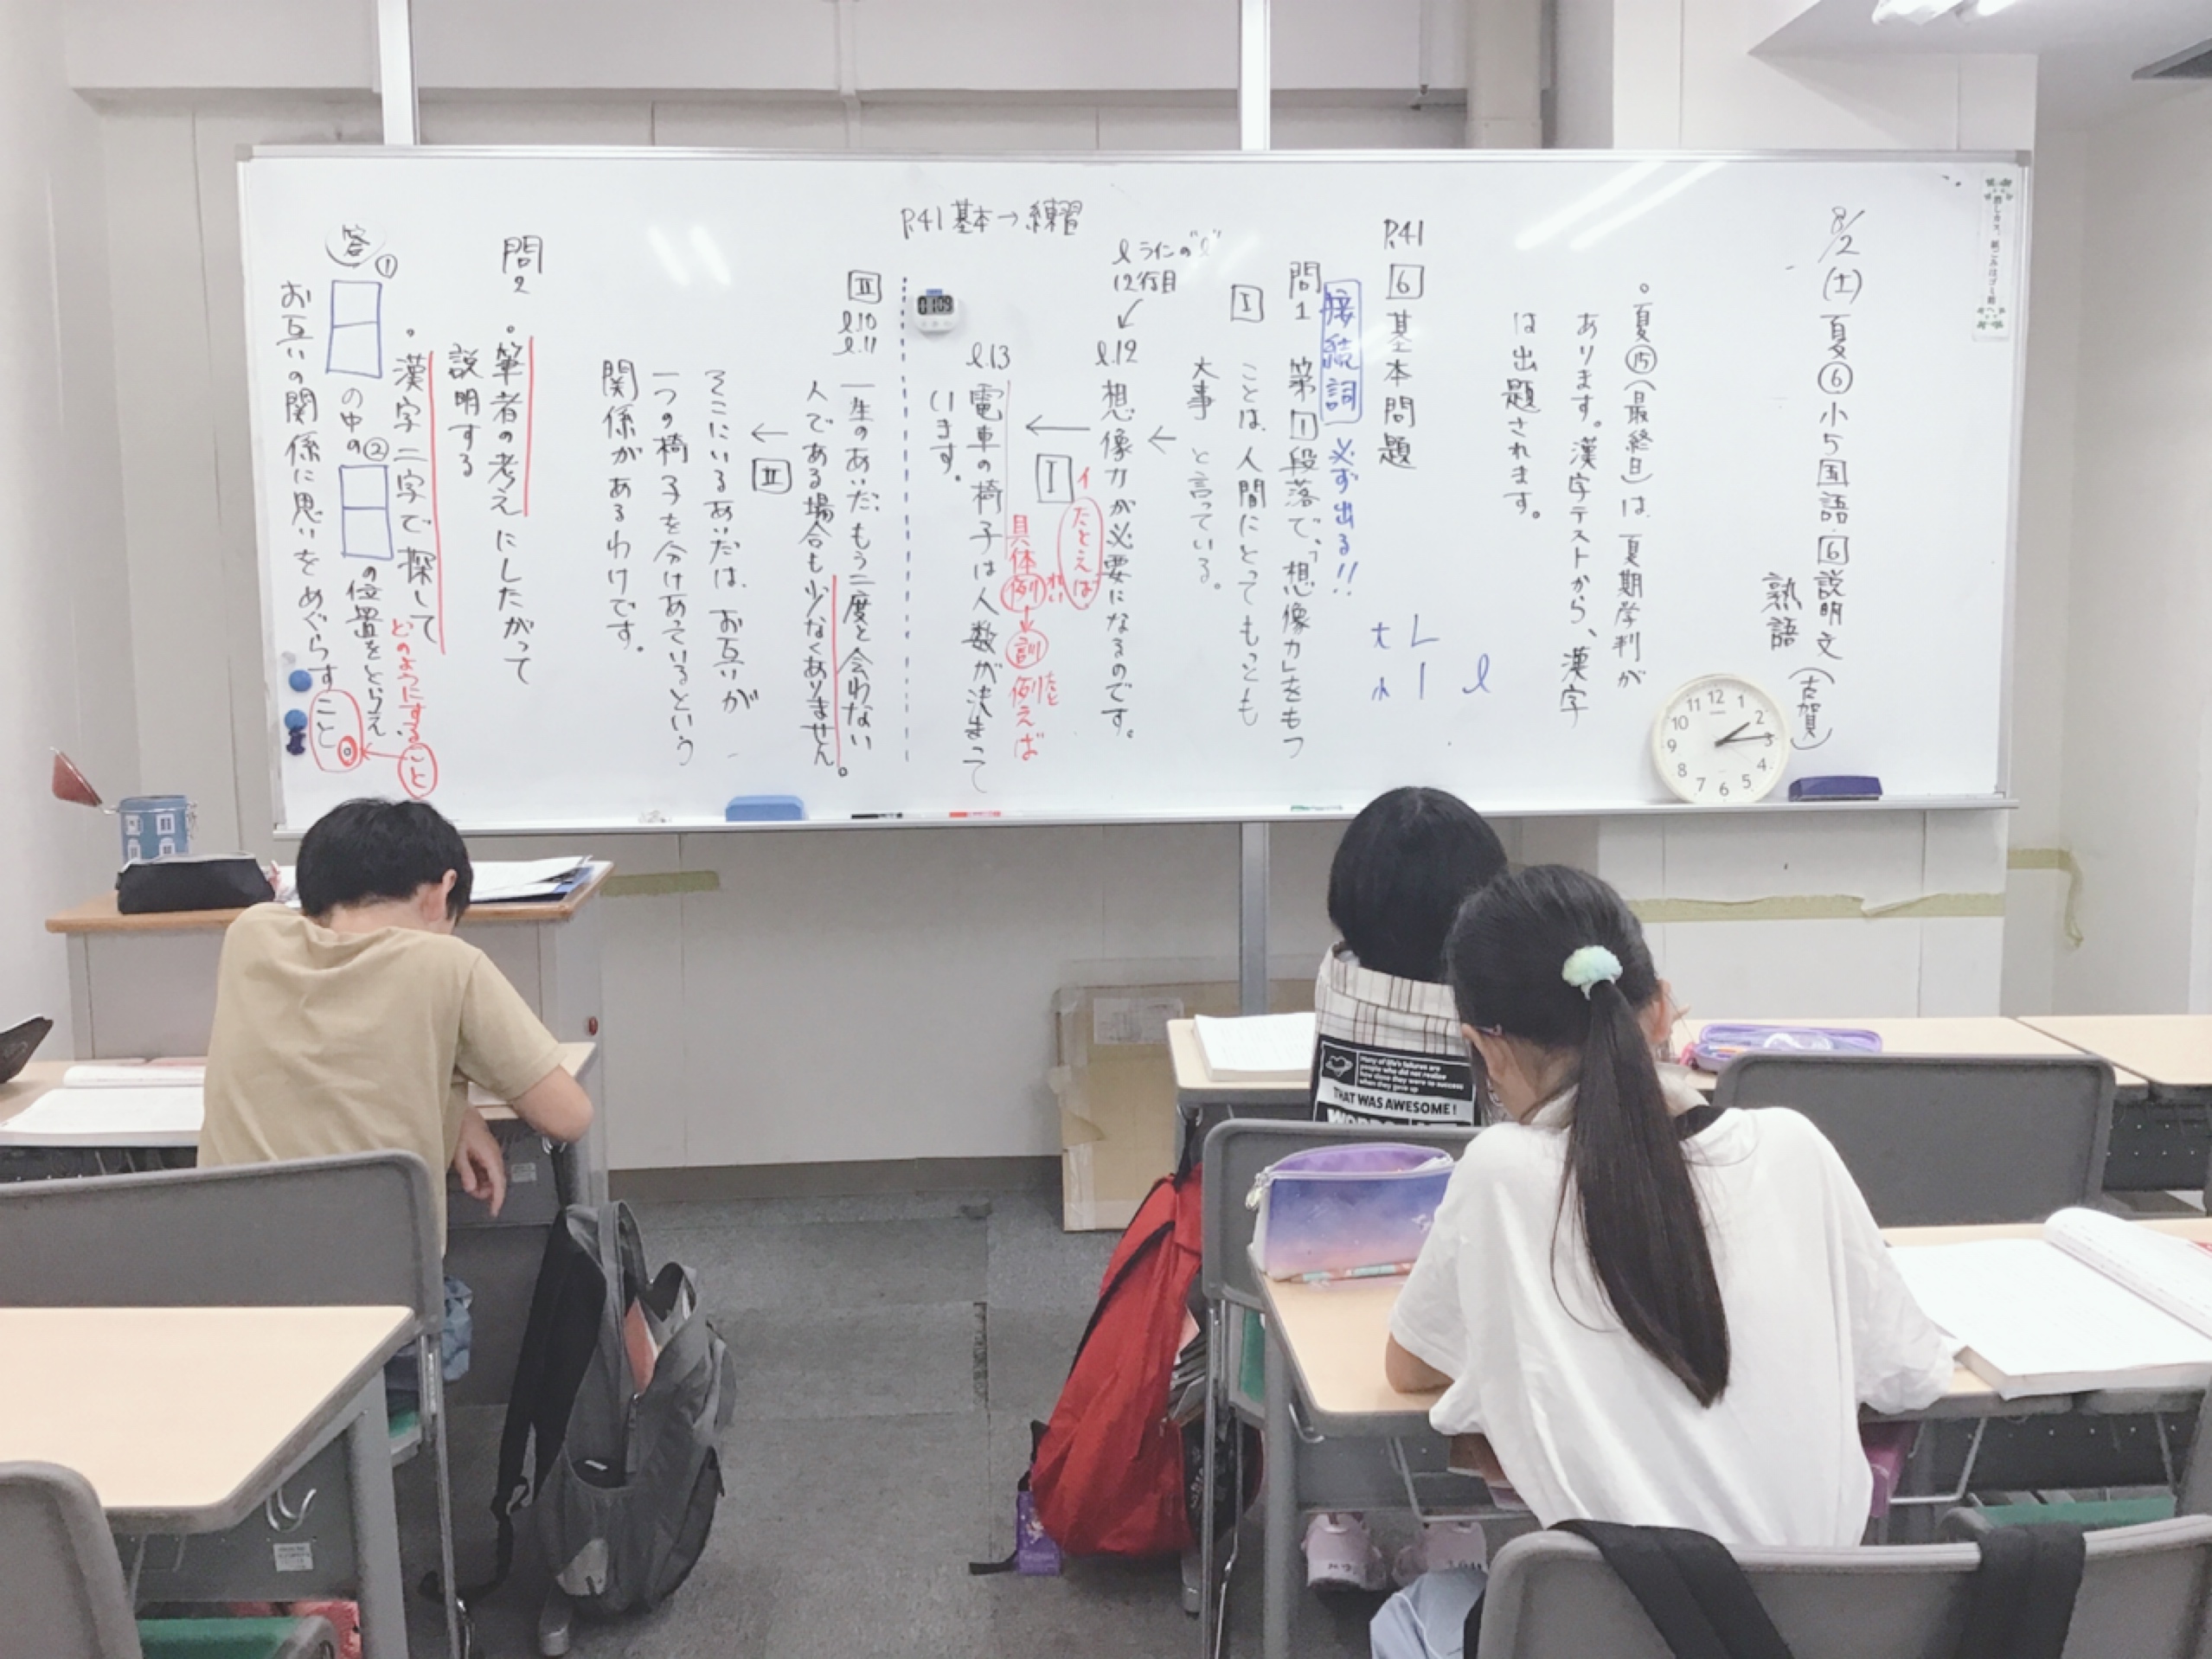 8/2(土)夏⑥小5国語 6 説明文
熟語
(古賀)
。夏⑮(最終日)は、夏期学判が
あります。漢字テストから、漢字
は出題されます。
大 L
小 l ℓ
P.41 6 基本問題
接続詞 必ず出る!!
問1 第1段落で、「想像力」をもつ
ことは、人間にとってもっとも
大事 と言っている。
I
ℓラインの"ℓ"
12行目
ℓ.12 想像力が必要になるのです。
イ
たとえば、
I
具体例 れい
訓 例えば たと
ℓ.13 電車の椅子は人数が決まって
います。
P.41 基本→練習
0109
II
ℓ.10
ℓ.11
一生のあいだ、もう二度と会わない
人である場合も少なくありません。
II
そこにいるあいだは、お互いが
一つの椅子を分けあっているという
関係があるわけです。
問2 。筆者の考えにしたがって
説明する
。漢字二字で探して
どのようにすること
答
① の中の② の位置をとらえ、
お互いの関係に思いをめぐらすこと。
12
1
2
3
4
5
6
7
8
9
10
11
Many of life's failures are
people who did not realize
how close they were to success
when they gave up
THAT WAS AWESOME!